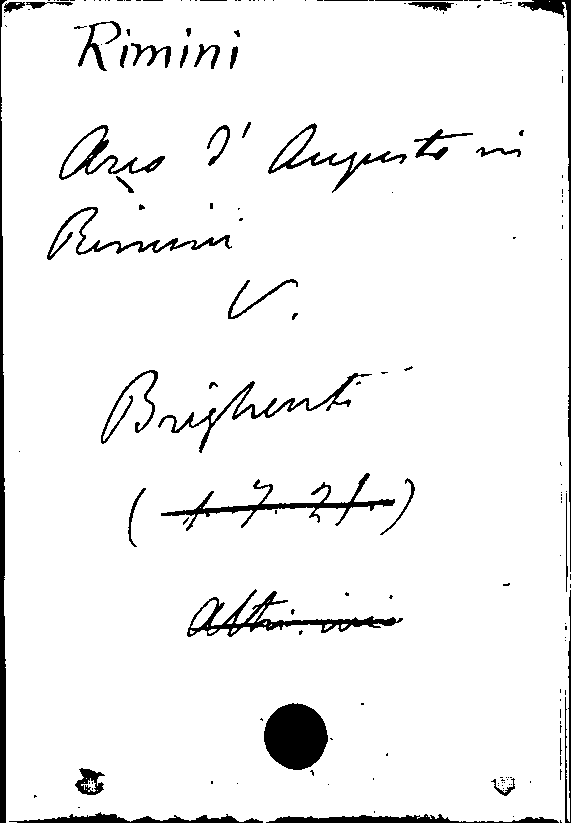 Rimini
Arco d' Augusto in
Rimini
V.
Brighenti
( 1. 7. 21. )
Altri. ivi